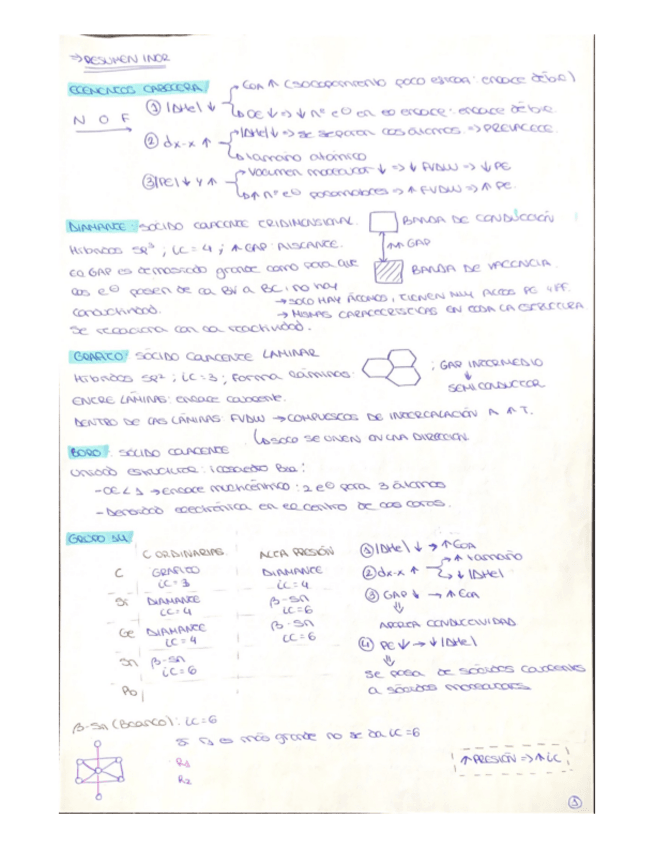 ⇒ RESUMEN INOR
ELEMENTOS CABECERA
N O F
① |ΔHe| ↓
COA ↑ (solapamiento poco eficaz: enlace débil)
OE ↓ ⇒ ↓ nº e⊖ en el enlace: enlace débil
② dx-x ↑
|ΔHe| ↓ ⇒ se separan los átomos ⇒ PREVALECE
tamaño atómico
③ |PE| ↓ y ↑
Volumen molecular ↓ ⇒ ↓ FVDW ⇒ ↓ PE
↑ nº e⊖ ⇒ ↑ FVDW ⇒ ↑ PE.
DIAMANTE: SÓLIDO COVALENTE TRIDIMENSIONAL.
Híbridos sp³; iC = 4; ↑ GAP: AISLANTE.
La GAP es demasiado grande como para que
los e⊖ pasen de la BV a BC: no hay
conductividad.
Se relaciona con la reactividad.
BANDA DE CONDUCCIÓN
↑↑ GAP
BANDA DE VALENCIA
→ SOLO HAY ÁTOMOS, TIENEN MUY ALTOS PE y PF
→ MISMAS CARACTERÍSTICAS EN TODA LA ESTRUCTURA
GRAFITO: SÓLIDO COVALENTE LAMINAR
Híbridos sp²; iC = 3; Forma láminas
; GAP INTERMEDIO
↓
SEMICONDUCTOR
ENTRE LÁMINAS: enlace covalente.
DENTRO DE LAS LÁMINAS: FVDW → COMPUESTOS DE INTERCALACIÓN A ↑ T.
↳ SOLO SE UNEN EN UNA DIRECCIÓN
BORO: SÓLIDO COVALENTE
Unidad estructural: icosaedro B12:
- OE < 1 → Enlace multicéntrico: 2 e⊖ para 3 átomos
- Densidad electrónica en el centro de las caras.
GRUPO 14
C ORDINARIAS ALTA PRESIÓN
C GRAFITO iC = 3 DIAMANTE iC = 4
Si DIAMANTE iC = 4 β-Sn iC = 6
Ge DIAMANTE iC = 4 β-Sn iC = 6
Sn β-Sn iC = 6
Pb
① |ΔHe| ↓ → ↑ COA
② dx-x ↑
↑ tamaño
↓ |ΔHe|
③ GAP ↓ → ↑ COA
⇓
APORTA CONDUCTIVIDAD
④ PE ↓ → ↓ |ΔHe|
⇓
se pasa de sólidos covalentes
a sólidos moleculares
β-Sn (Blanco): iC = 6
Si es más grande no se da iC = 6
R1
R2
↑ PRESIÓN ⇒ ↑ iC
1